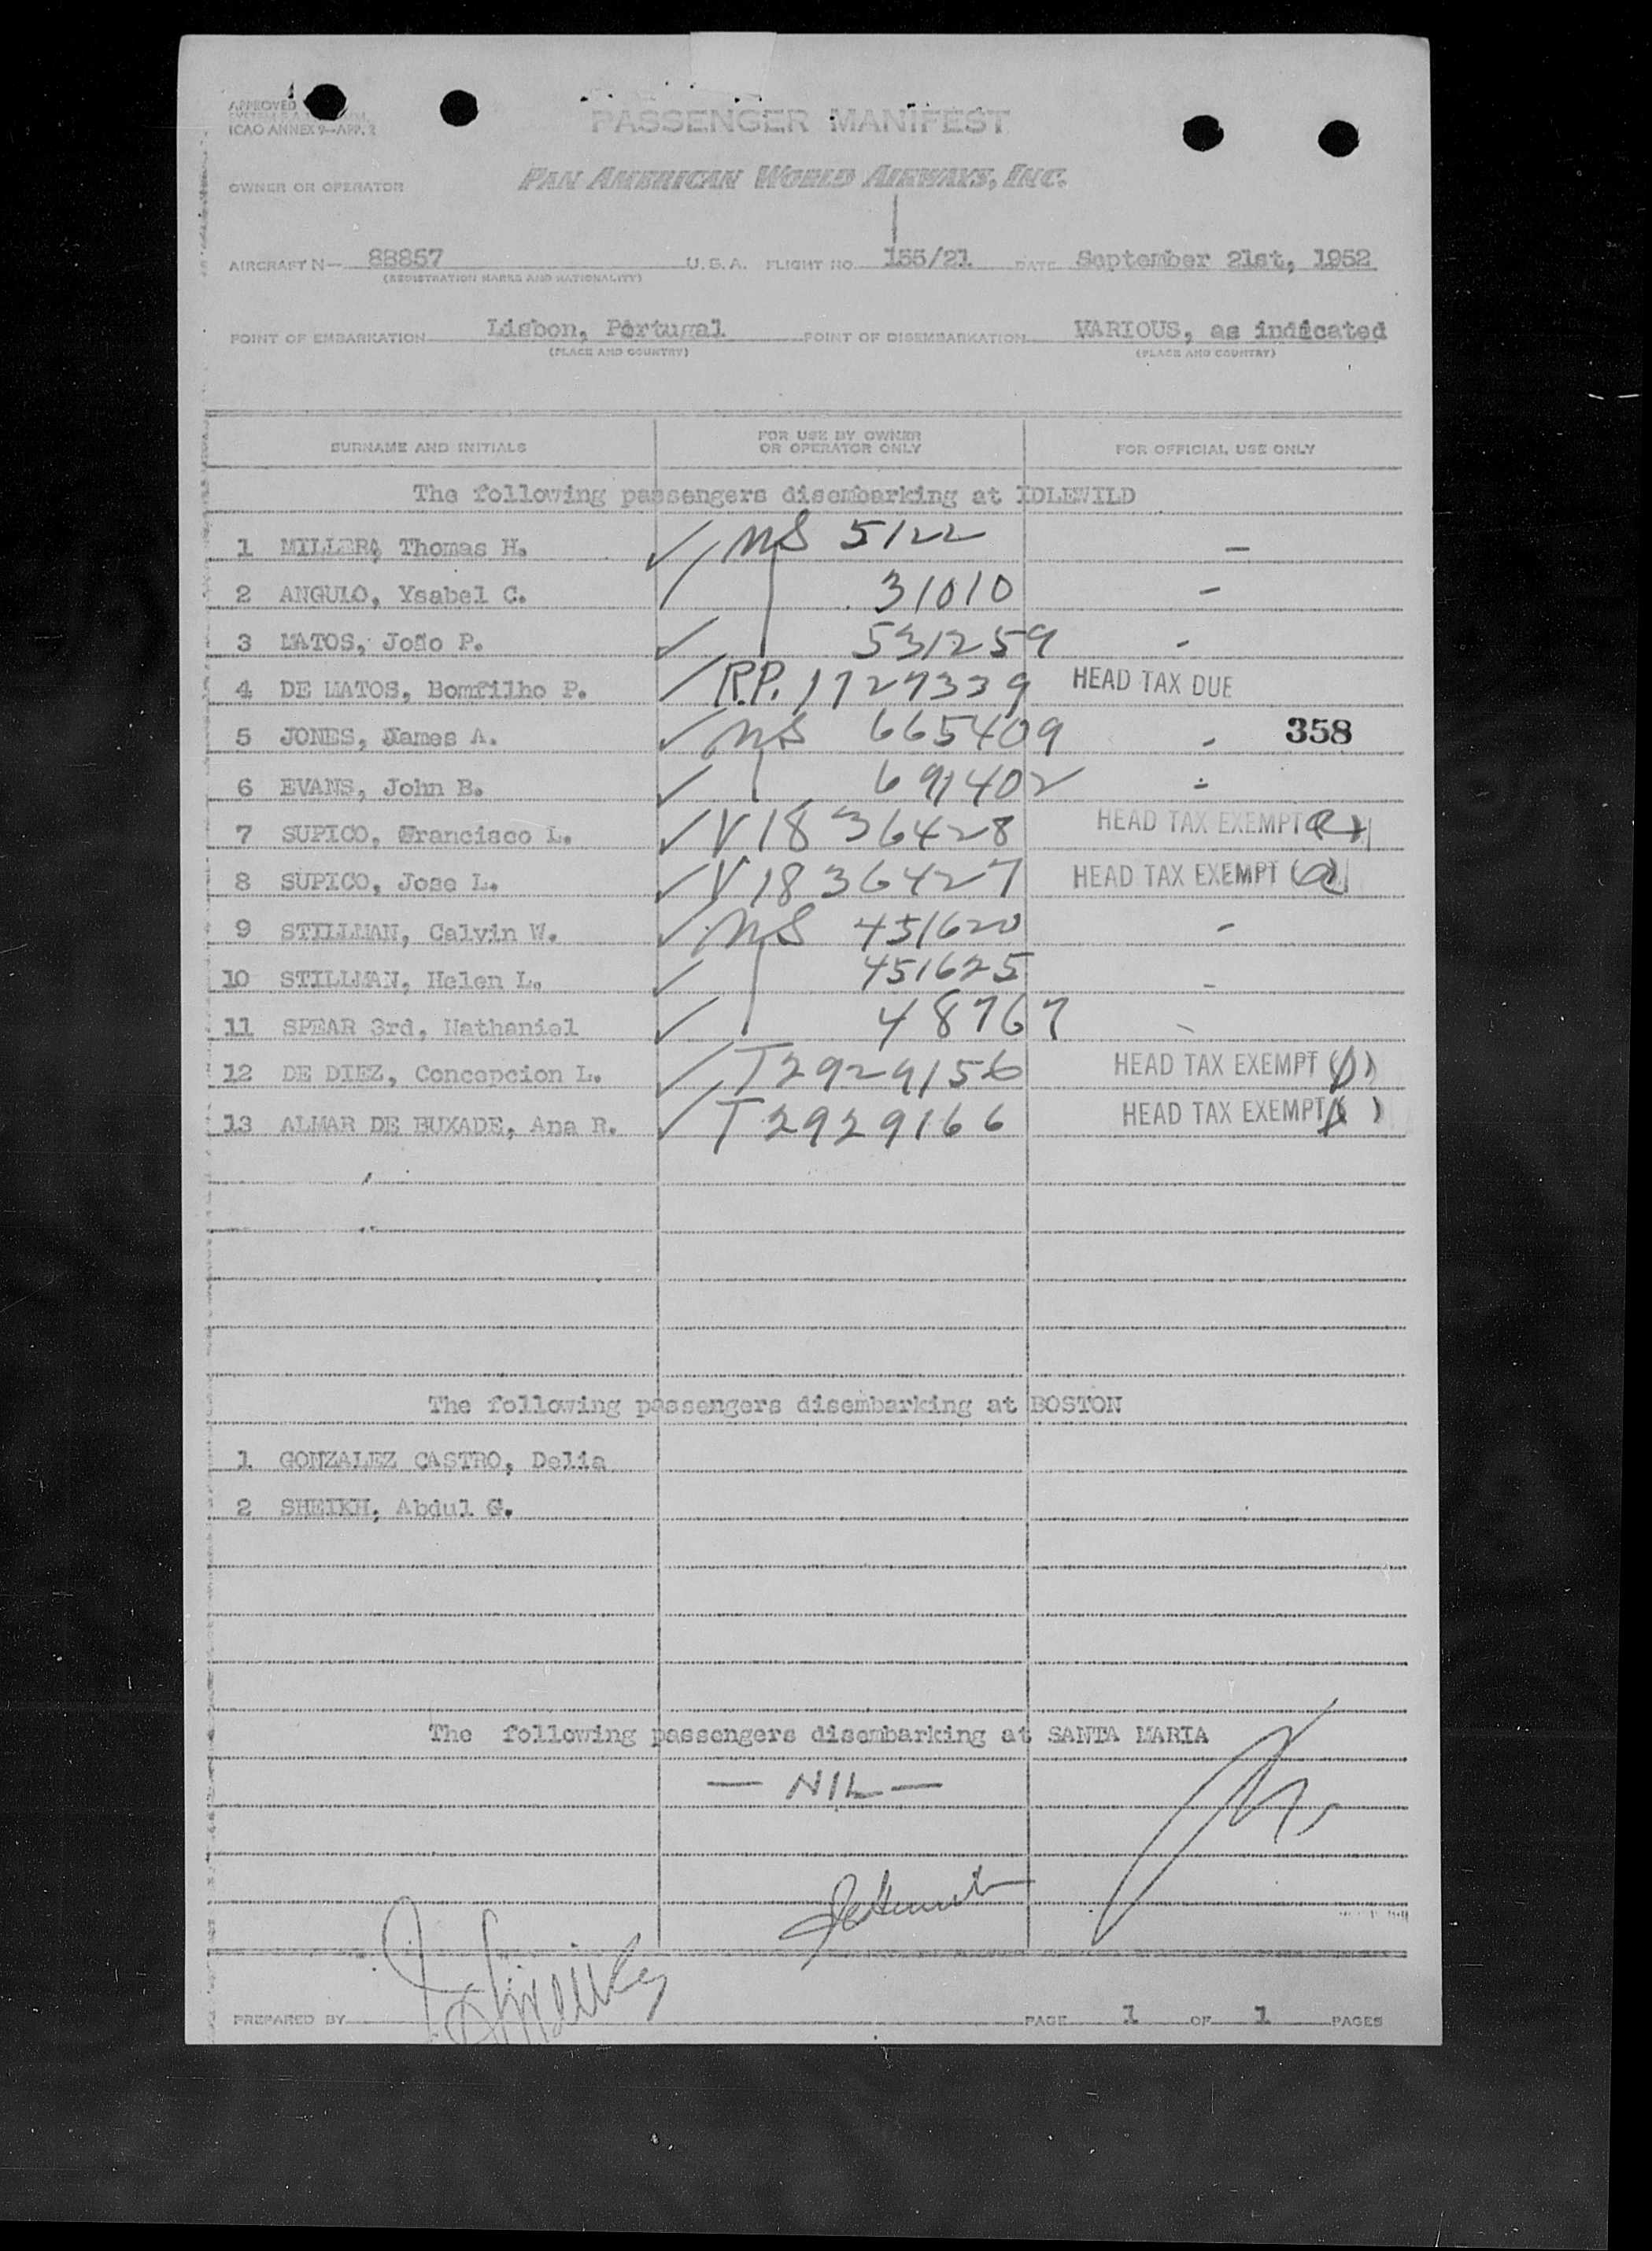 APPROVED
ICAO ANNEX 9—APP. 2
PASSENGER MANIFEST
OWNER OR OPERATOR PAN AMERICAN WORLD AIRWAYS, INC.
AIRCRAFT N— 88857 U.S.A. FLIGHT NO. 155/21 DATE September 21st, 1952
(REGISTRATION MARKS AND NATIONALITY)
POINT OF EMBARKATION Lisbon, Portugal POINT OF DISEMBARKATION VARIOUS, as indicated
(PLACE AND COUNTRY) (PLACE AND COUNTRY)
SURNAME AND INITIALS FOR USE BY OWNER OR OPERATOR ONLY FOR OFFICIAL USE ONLY
The following passengers disembarking at IDLEWILD
1 MILLER, Thomas H. ✓ 5122 –
2 ANGULO, Ysabel C. / 31010 –
3 MATOS, João P. ✓ 531259 -
4 DE MATOS, Bomfilho P. ✓ R.P. 1727339 HEAD TAX DUE
5 JONES, James A. ✓ 665409 - 358
6 EVANS, John B. ✓ 691402 -
7 SUPICO, Francisco L. ✓ V1836428 HEAD TAX EXEMPT
8 SUPICO, Jose L. ✓ V1836427 HEAD TAX EXEMPT
9 STILLMAN, Calvin W. ✓ 451620 -
10 STILLMAN, Helen L. ✓ 451625 -
11 SPEAR 3rd, Nathaniel ✓ 48767 -
12 DE DIEZ, Concepcion L. ✓ T2929156 HEAD TAX EXEMPT
13 ALMAR DE BUXADE, Ana R. ✓ T2929166 HEAD TAX EXEMPT
The following passengers disembarking at BOSTON
1 GONZALEZ CASTRO, Delia
2 SHEIKH, Abdul G.
The following passengers disembarking at SANTA MARIA
— NIL —
PREPARED BY PAGE 1 OF 1 PAGES